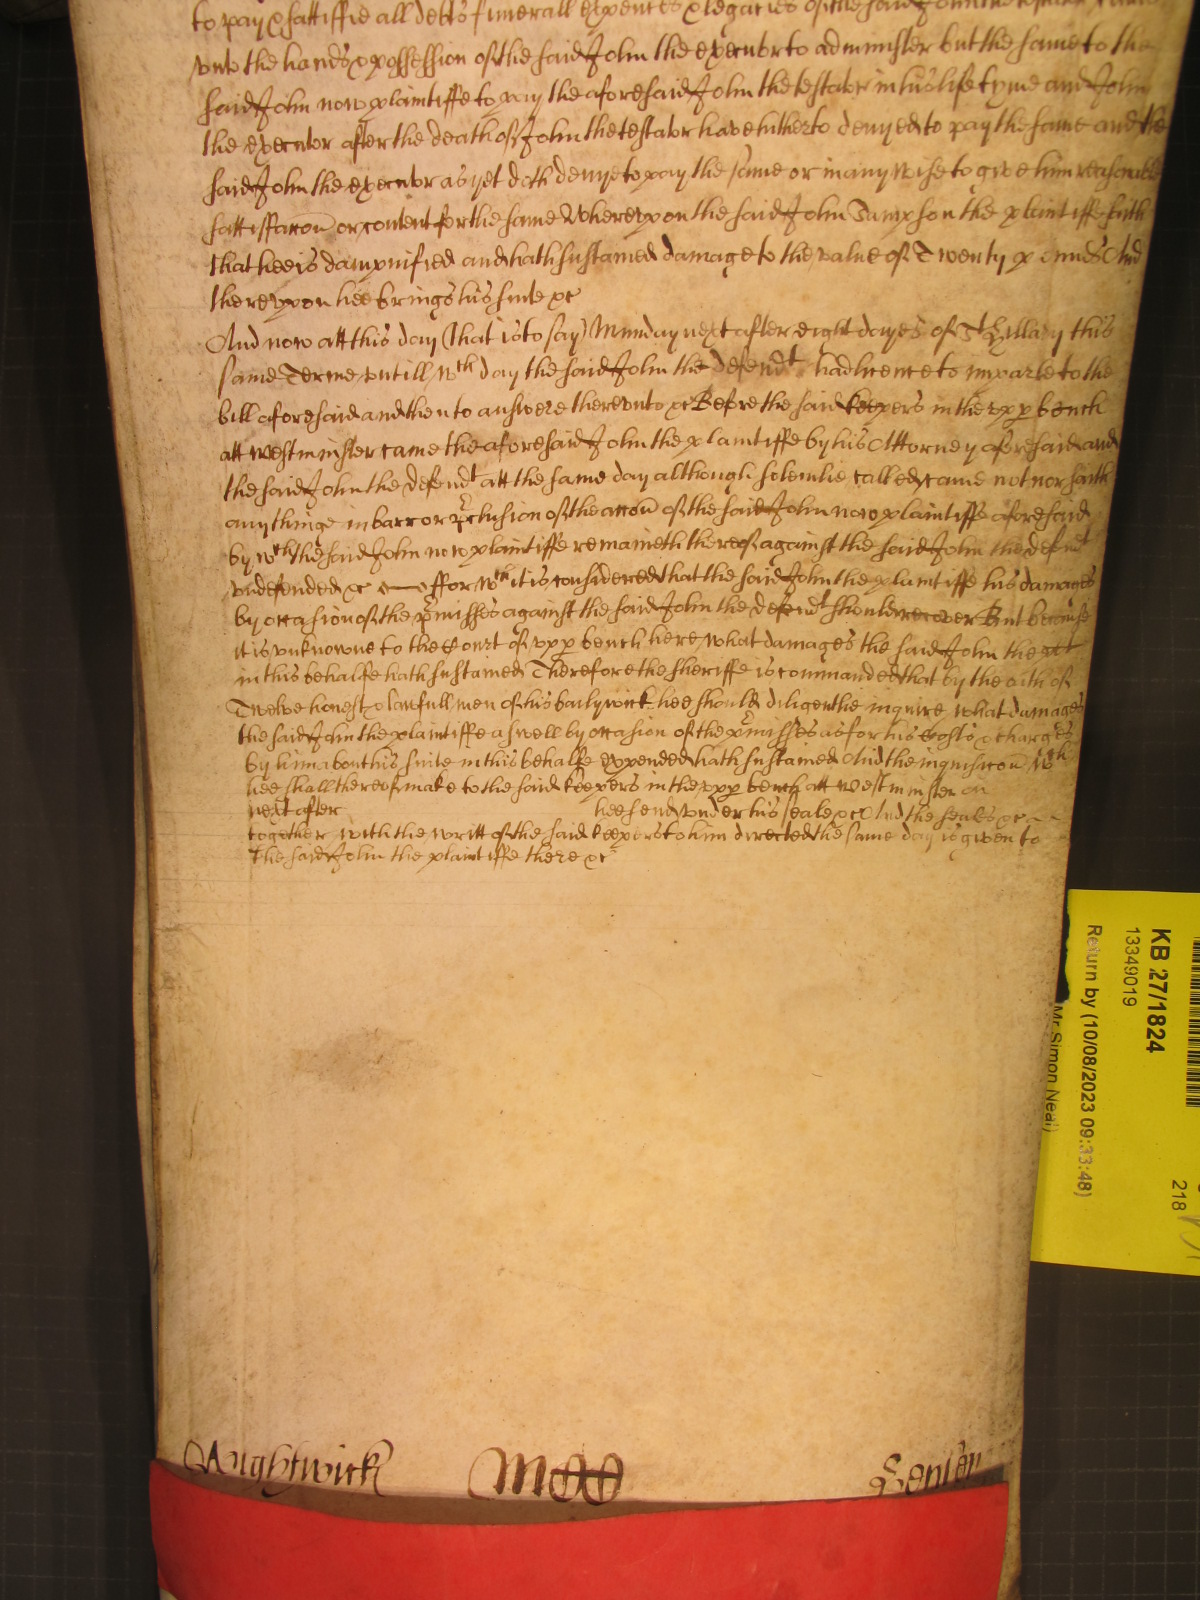 to pay & sattisfie all debts funerall expences & legacies of the said John the testator
unto the hands & possession of the said John the executor to administer but the same to the
said John now plaintiffe to pay the aforesaid John the testator in his life tyme and John
the executor after the death of John the testator have hitherto denyed to pay the same and the
said John the executor as yet doth denye to pay the same or in any wise to give him reasonable
sattisfaccon or content for the same Whereupon the said John Sampson the plaintiffe saith
that hee is dampnified and hath sustained damage to the value of Twenty pounds And
thereupon hee brings his suite &c
And now att this day (that is to say) Munday next after eight dayes of St Hillary this
same Terme untill wch day the said John the defendt had licence to imparle to the
bill aforesaid and then to answere thereunto &c Before the said keepers in the upp bench
att Westminster came the aforesaid John the plaintiffe by his Attorney aforesaid and
the said John the defendt att the same day although solemlie called came not nor saith
any thinge in barr or pclusion of the accon of the said John now plaintiffe aforesaid
by wch the said John now plaintiffe remaineth thereof against the said John the defendt
undefended &c ffor wch it is considered that the said John the plaintiffe his damages
by occasion of the pmisses against the said John the defendt should recover But because
it is unknowne to the Court of upp bench here what damages the said John the plt
in this behalfe hath sustained Therefore the sheriffe is commanded that by the oath of
Twelve honest & lawfull men of his bailywick hee should diligentlie inquire what damages
the said John the plaintiffe aswell by occasion of the pmisses as for his Costs & charges
by him about his suite in this behalfe expended hath sustained And the inquisicon wch
hee shall thereof make to the said keepers in the upp bench att Westminster on
next after hee send under his seale &c And the seales &c
together with the writt of the said keepers to him directed the same day is given to
the said John the plaintiffe there &c
Wightwick
KB 27/1824
13349019
Return by (10/08/2023 09:33:48)
Mr Simon Neal)
218